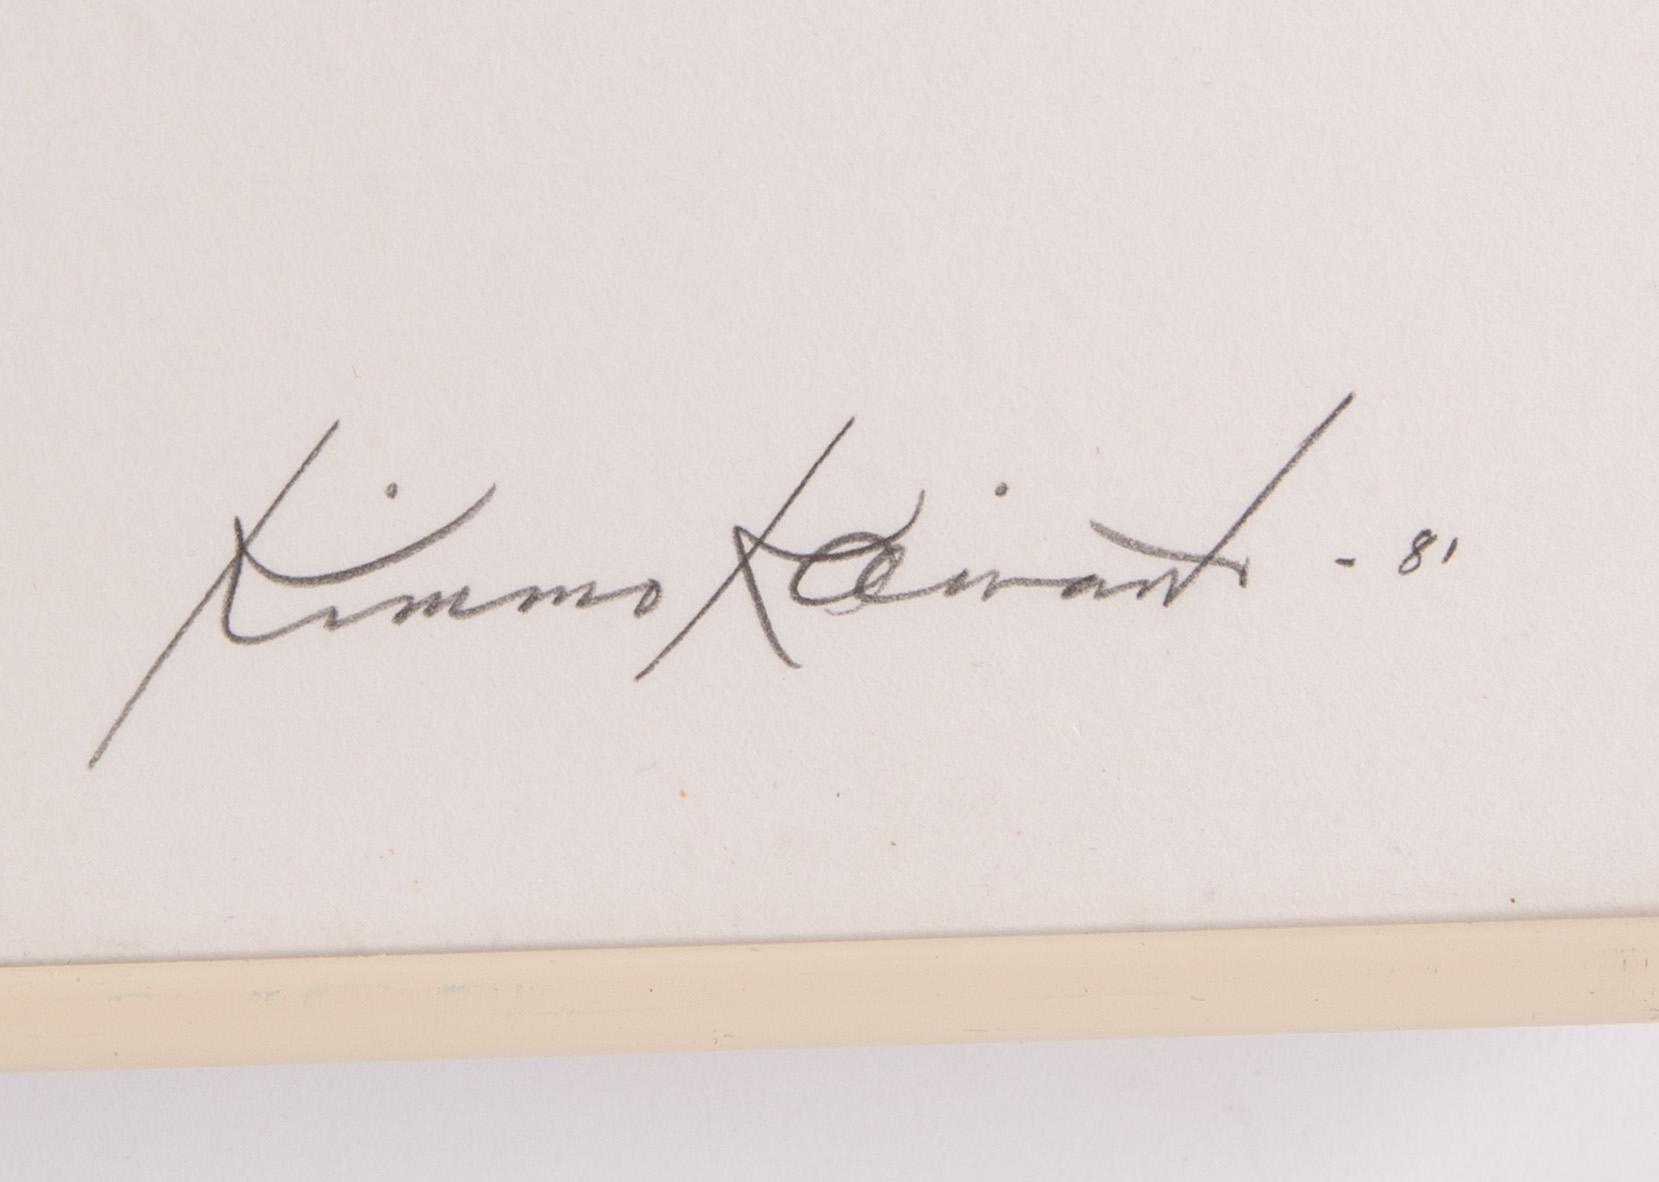 Kimmo Kaivanto - 81